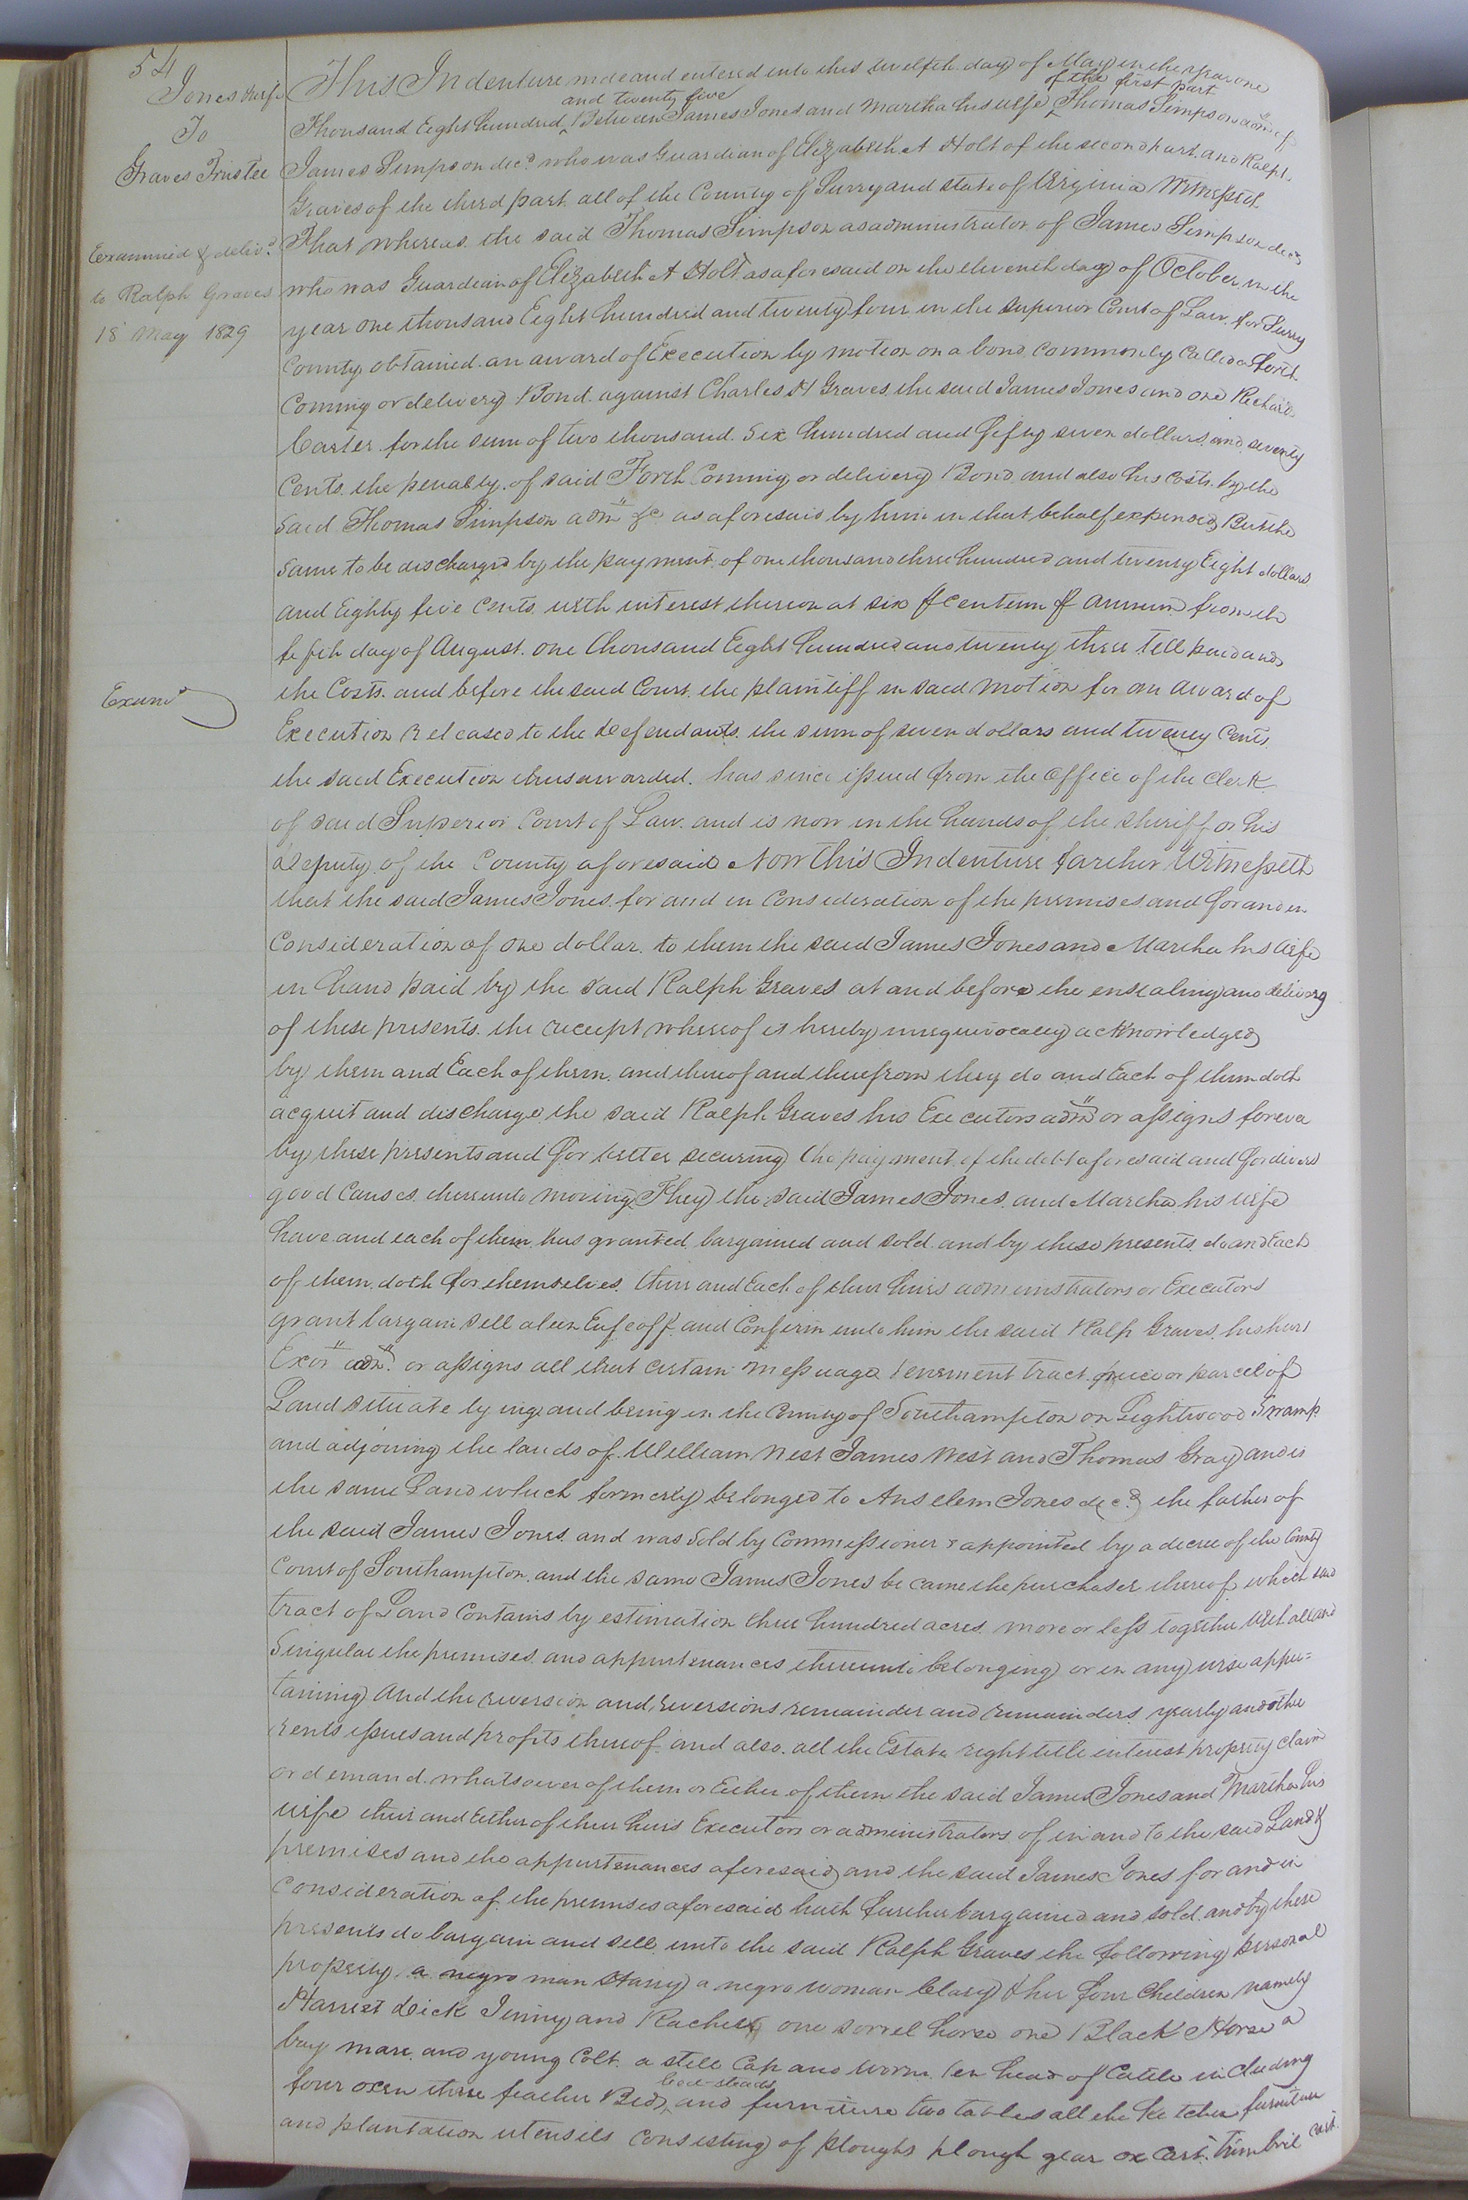 54
Jones & wife
To
Graves Trustee
Examined & delivd.
to Ralph Graves
18 May 1829
Examd
This Indenture made and entered into this twelfth day of May in the year one
and twenty five of the first part
Thousand Eight hundred ^ Between James Jones and Martha his wife ^ Thomas Simpson adm of
James Simpson decd who was Guardian of Elizabeth A Holt of the second part and Ralph
Graves of the third part all of the County of Surry and state of Virginia Witnesseth
That whereas the said Thomas Simpson as administrator of James Simpson decd
who was Guardian of Elizabeth A Holt as aforesaid on the eleventh day of October in the
year one thousand Eight hundred and twenty four in the Superior Court of Law for Surry
County obtained an award of Execution by motion on a bond commonly called a forth
Coming or delivery Bond against Charles H Graves the said James Jones and one Richard
Carter for the sum of two thousand Six hundred and fifty seven dollars and seventy
Cents the penalty of said Forth Coming or delivery Bond and also his costs by the
said Thomas Simpson adm &c as aforesaid by him in that behalf expended But the
same to be discharged by the payment of one thousand three hundred and twenty Eight dollars
and Eighty five Cents with interest thereon at six ⅌ centum ⅌ annum from the
fifth day of August one thousand Eight hundred and twenty three till paid and
the Costs and before the said Court the plaintiff in said motion for an award of
Execution Released to the defendants the sum of seven dollars and twenty Cents
the said Execution thus awarded has since issued from the office of the Clerk
of said Superior Court of Law and is now in the hands of the sheriff or his
deputy of the County aforesaid Now this Indenture farther Witnesseth
that the said James Jones for and in Consideration of the premises and for and in
Consideration of one dollar to them the said James Jones and Martha his wife
in hand paid by the said Ralph Graves at and before the ensealing and delivery
of these presents the receipt whereof is hereby unequivocally acknowledged
by them and Each of them and thereof and therefrom they do and Each of them doth
acquit and discharge the said Ralph Graves his Executors adms or assigns forever
by these presents and for better securing the payment of the debt aforesaid and for divers
good Causes thereunto moving They the said James Jones and Martha his wife
have and each of them has granted bargained and sold and by these presents do and Each
of them doth for themselves their and Each of their heirs administrators or Executors
grant bargain sell alien Enfeoff and Confirm unto him the said Ralp Graves his heirs
Exors adms or assigns all that certain messuage tenement tract piece or parcel of
Land situate lying and being in the County of Southampton on Lightwood Swamp
and adjoining the lands of William West James West and Thomas Gray and is
the same Land which formerly belonged to Anselem Jones decd the father of
the said James Jones and was sold by Commissioners appointed by a decree of the County
Court of Southampton and the same James Jones became the purchaser thereof which said
tract of Land Contains by estimation three hundred acres more or less together with all and
Singular the premises and appurtenances thereunto belonging or in any wise apper=
taining And the reversion and reversions remainder and remainders yearly and other
rents issues and profits thereof and also all the Estate right title interest property claim
or demand whatsoever of them or Either of them the said James Jones and Martha his
wife their and Either of their heirs Executors or administrators of in and to the said Land &
premises and the appurtenances aforesaid and the said James Jones for and in
Consideration of the premises aforesaid hath further bargained and sold and by these
presents do bargain and sell unto the said Ralph Graves the following personal
property a negro man Harry a negro woman Clary & her four Children namely
Harriet Dick Jenny and Rachel one sorrel horse one Black Horse a
bay mare and young Colt a still Cap and worm ten head of Cattle including
bed-steads
four oxen three feather Beds ^ and furniture two tables all the kitchen furniture
and plantation utensils consisting of ploughs plough gear ox cart tumbril cart